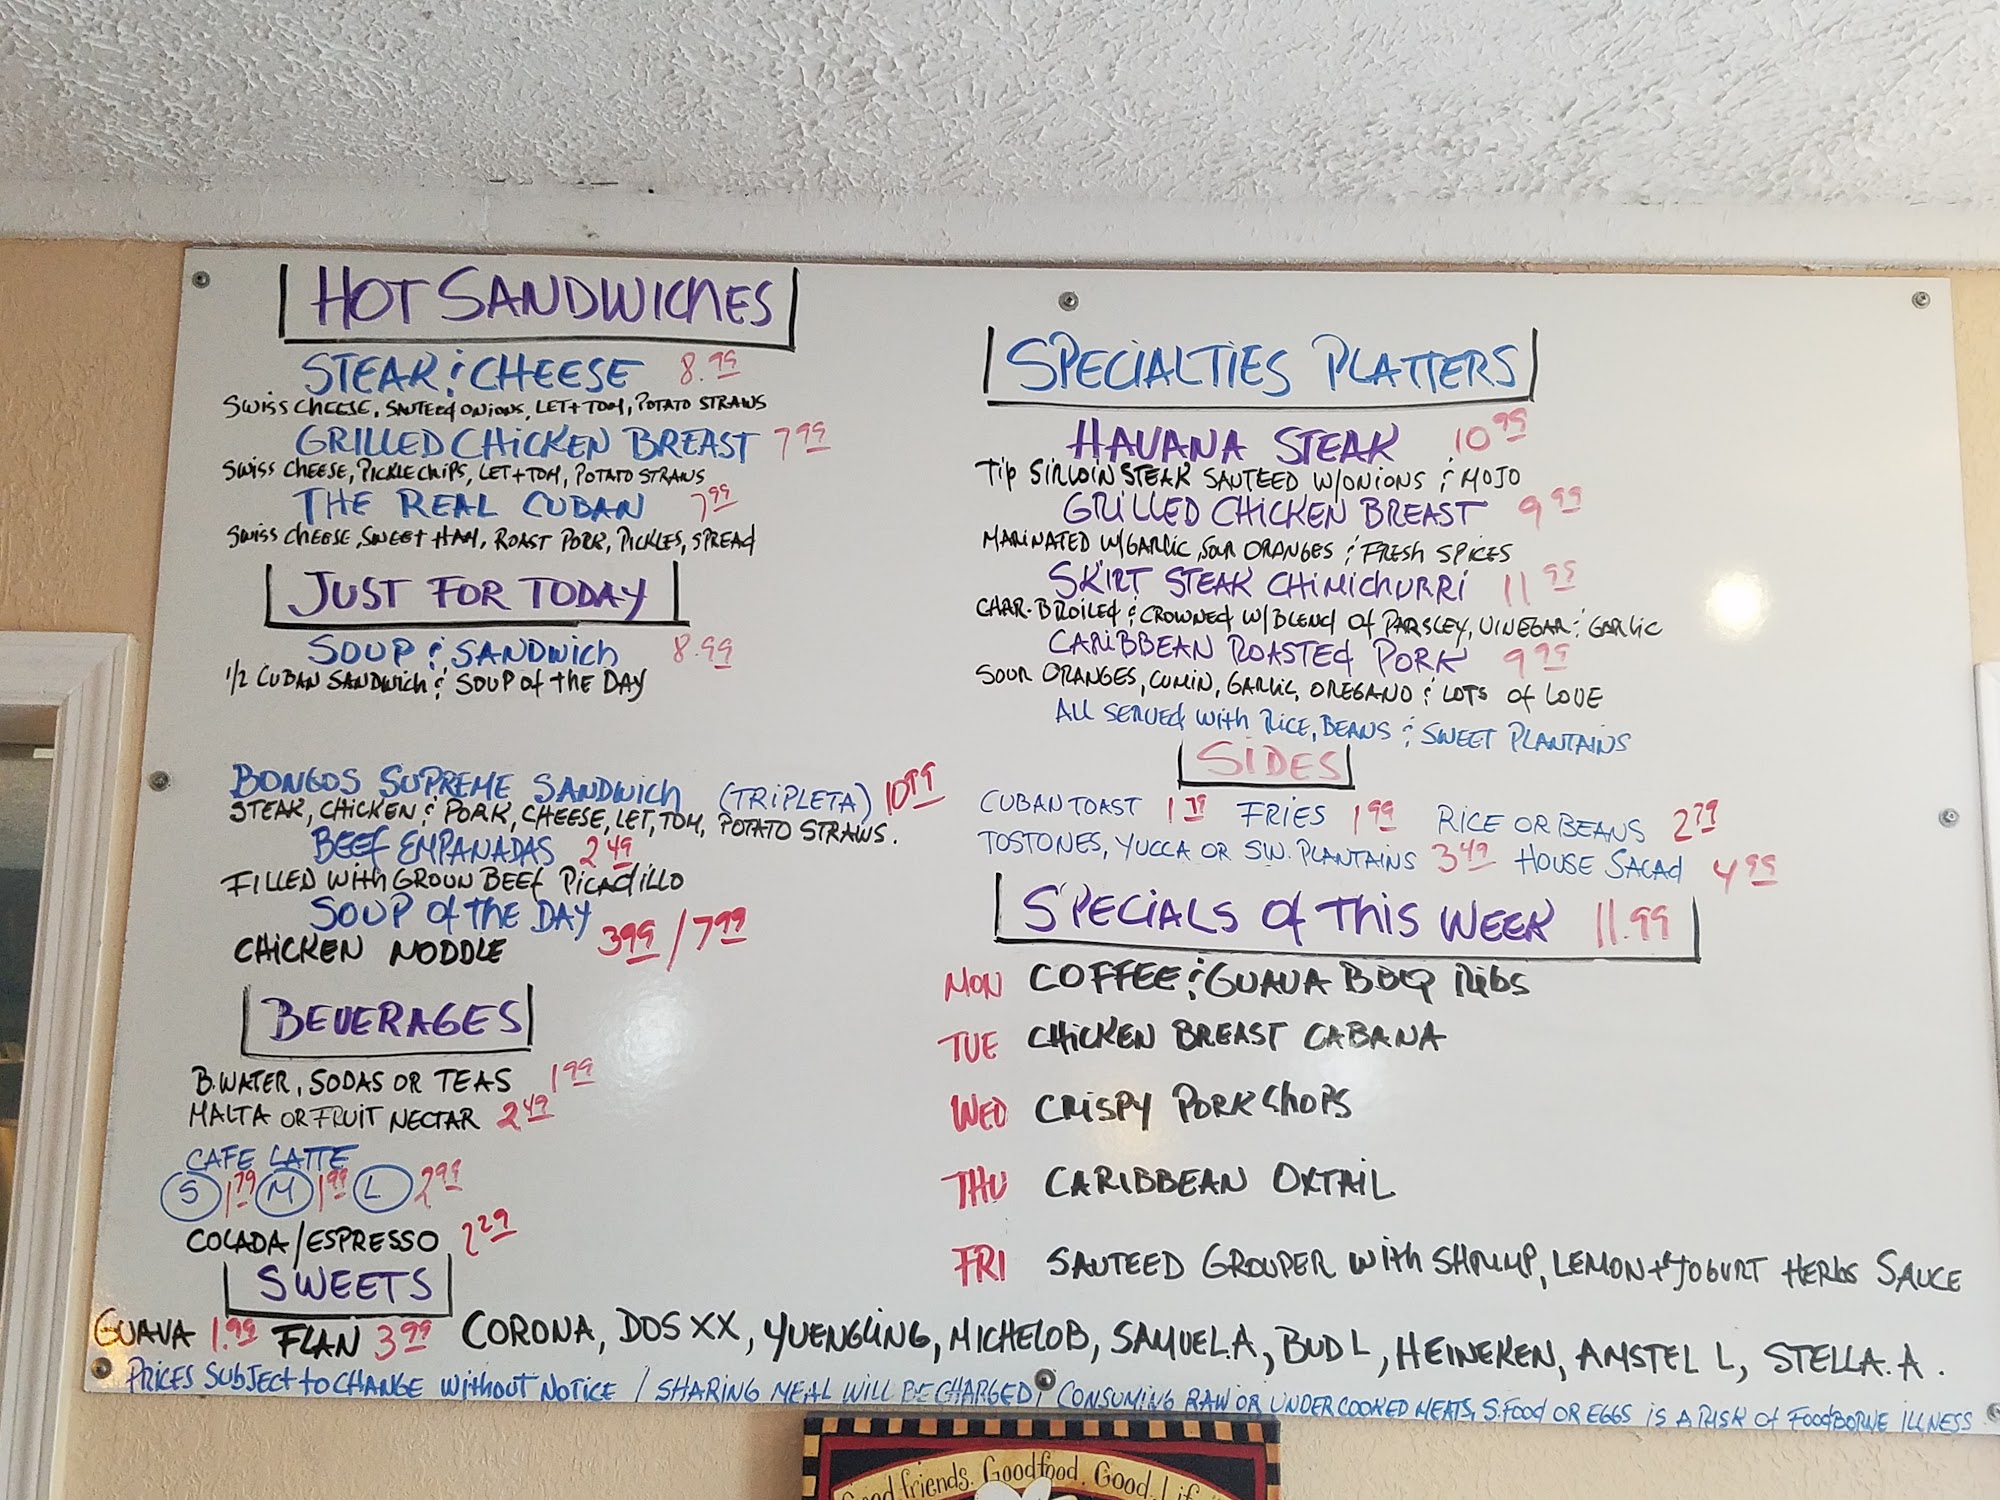 HOT SANDWICHES
STEAK & CHEESE 8.99
SWISS CHEESE, SAUTEED ONIONS, LET + TOM, POTATO STRAWS
GRILLED CHICKEN BREAST 7 99
SWISS CHEESE, PICKLE CHIPS, LET + TOM, POTATO STRAWS
THE REAL CUBAN 7 99
SWISS CHEESE, SWEET HAM, ROAST PORK, PICKLES, SPREAD
JUST FOR TODAY
SOUP & SANDWICH 8.99
1/2 CUBAN SANDWICH & SOUP OF THE DAY
BONGOS SUPREME SANDWICH (TRIPLETA) 10 99
STEAK, CHICKEN & PORK, CHEESE, LET, TOM, POTATO STRAWS.
BEEF EMPANADAS 2 49
FILLED WITH GROUN BEEF PICADILLO
SOUP OF THE DAY 3 99 / 7 99
CHICKEN NODDLE
BEVERAGES
B. WATER, SODAS OR TEAS 1 99
MALTA OR FRUIT NECTAR 2 49
CAFE LATTE
S 1 79 M 1 99 L 2 99
COLADA/ESPRESSO 2 29
SWEETS
GUAVA 1.99 FLAN 3 99
SPECIALTIES PLATTERS
HAVANA STEAK 10 99
TIP SIRLOIN STEAK SAUTEED W/ONIONS & MOJO
GRILLED CHICKEN BREAST 9 99
MARINATED W/GARLIC, SOUR ORANGES & FRESH SPICES
SKIRT STEAK CHIMICHURRI 11 99
CHAR-BROILED & CROWNED W/BLEND OF PARSLEY, VINEGAR & GARLIC
CARIBBEAN ROASTED PORK 9 99
SOUR ORANGES, CUMIN, GARLIC, OREGANO & LOTS OF LOVE
ALL SERVED WITH RICE, BEANS & SWEET PLANTAINS
SIDES
CUBAN TOAST 1 79 FRIES 1 99 RICE OR BEANS 2 79
TOSTONES, YUCCA OR SW. PLANTAINS 3 49 HOUSE SALAD 4 99
SPECIALS OF THIS WEEK 11.99
MON COFFEE & GUAVA BBQ RIBS
TUE CHICKEN BREAST CABANA
WED CRISPY PORK CHOPS
THU CARIBBEAN OXTAIL
FRI SAUTEED GROUPER WITH SHRIMP, LEMON + YOGURT HERBS SAUCE
CORONA, DOS XX, YUENGLING, MICHELOB, SAMUEL.A, BUD L, HEINEKEN, AMSTEL L, STELLA.A.
PRICES SUBJECT TO CHANGE WITHOUT NOTICE / SHARING MEAL WILL BE CHARGED / CONSUMING RAW OR UNDERCOOKED MEATS, S.FOOD OR EGGS IS A RISK OF FOODBORNE ILLNESS
Good friends. Good food. Good Life